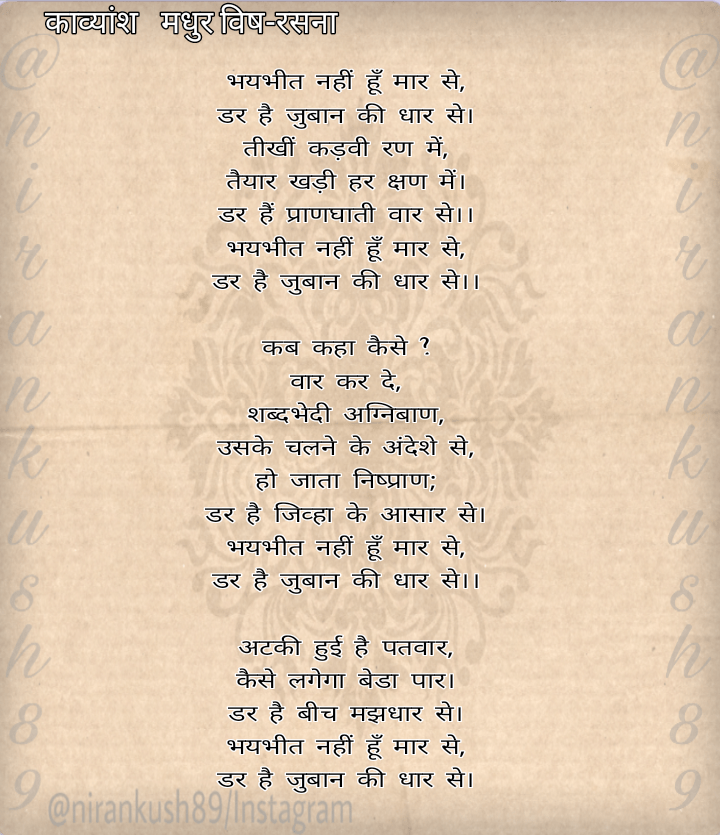 काव्यांश मधुर विष-रसना
भयभीत नहीं हूँ मार से,
डर है जुबान की धार से।
तीखीं कड़वी रण में,
तैयार खड़ी हर क्षण में।
डर हैं प्राणघाती वार से।।
भयभीत नहीं हूँ मार से,
डर है जुबान की धार से।।
कब कहा कैसे ?
वार कर दे,
शब्दभेदी अग्निबाण,
उसके चलने के अंदेशे से,
हो जाता निष्प्राण;
डर है जिव्हा के आसार से।
भयभीत नहीं हूँ मार से,
डर है जुबान की धार से।।
अटकी हुई है पतवार,
कैसे लगेगा बेडा पार।
डर है बीच मझधार से।
भयभीत नहीं हूँ मार से,
डर है जुबान की धार से।
@nirankush89/Instagram
@nirankush89
@nirankush89